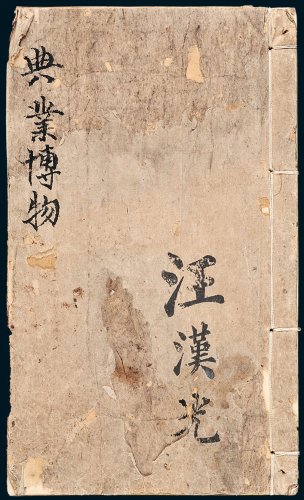 典業博物
汪漢光